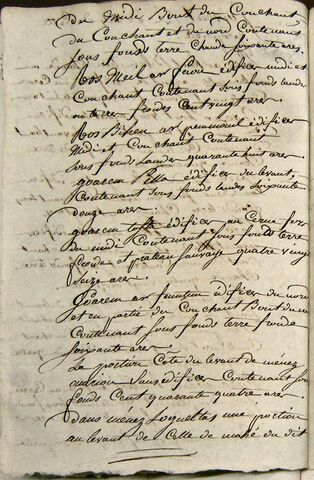 du Midi Bout du Couchant,
du Couchant et du nord Contenant
sous fonds terre Chaude soixante ares.
édifice midi et
Couchant Contenant sous fonds lande
ou terre froides Cent vingt ares.
édifices
Midi et Couchant Contenant
sous fonds Landes quarante huit ares.
édifices du levant,
Contenant sous fonds landes soixante
douze ares
édifices au Cerne fors
du midi Contenant sous fonds terre
froide et plateau sauvage quatre vingt
seize ares.
édifices du nord
et en partie du Couchant Bout du m
Contenant sous fonds terre froide
soixante ares.
La portion Coté du levant de menez
sans édifices Contenant sou
fonds Cent quarante quatre ares.
dans menez une portion
au levant de Celle de du dit